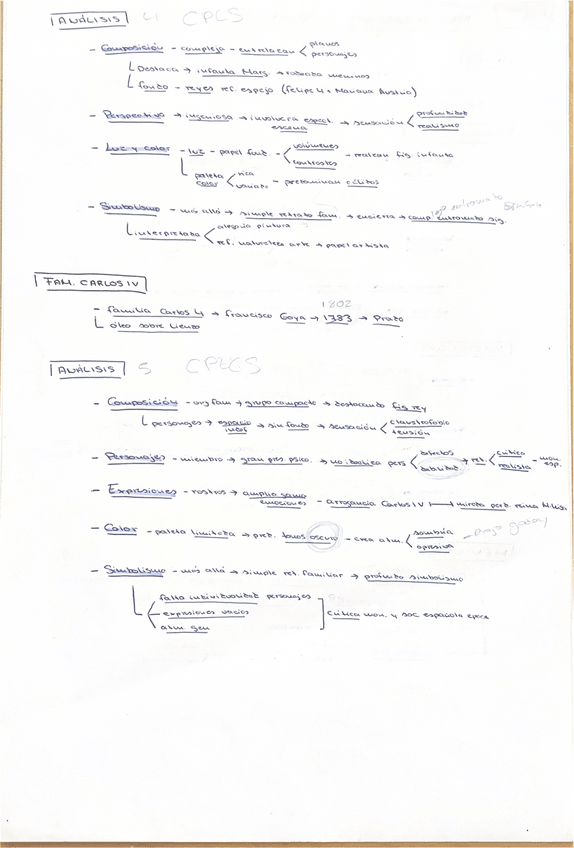 ANÁLISIS 4 CPLS
- Composición - compleja - entrelazan < planos
personajes
Destaca → infanta Marg. → rodeada meninas
fondo - reyes ref. espejo (Felipe 4 + Mariana Austria)
- Perspectiva → ingeniosa → involucra espect. → sensación < profundidad
escena realismo
- Luz y color - luz - papel fund. < volúmenes - realzan fig infanta
contrastes
paleta < rica - predominan cálidos
color variada
- Simbolismo - más allá → simple retrato fam. → encierra → comp entramado sig.
interpretada < alegoría pintura
ref. naturaleza arte → papel artista
FAM. CARLOS IV
- familia Carlos 4 → Francisco Goya → 1783 → Prado
1802
óleo sobre lienzo
ANÁLISIS 5 CPECS
- Composición - org fam → grupo compacto → destacando fig rey
personajes → espacio → sin fondo → sensación < claustrofobia
indef tensión
- Personajes - miembro → gran pres. psico. → no idealiza pers < defectos → ret. < crítico - mon.
debilidad. realista esp.
- Expresiones - rostros → amplia gama - arrogancia Carlos IV ⟷ mirada perd. reina M. Luis.
emociones
- Color - paleta limitada → pred. tonos oscuro - crea atm. < sombría
opresiva
- Simbolismo - más allá → simple ret. familiar → profundo simbolismo
falta individualidad personajes
expresiones vacías ] crítica mon. y soc española época
atm. gen